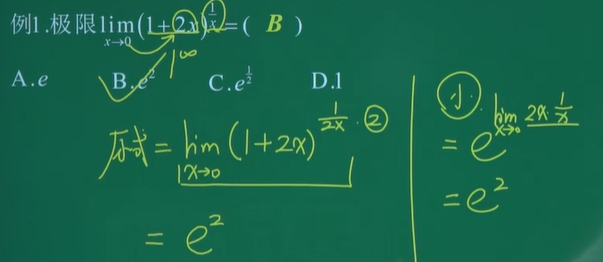 例1.极限lim x→0 (1+2x)^(1/x) =( B )
1^∞
A.e B.e² C.e^(1/2) D.1
原式 = lim x→0 (1+2x)^(1/(2x)·②)
= e²
小.
= e^(lim x→0 2x·1/x)
= e²